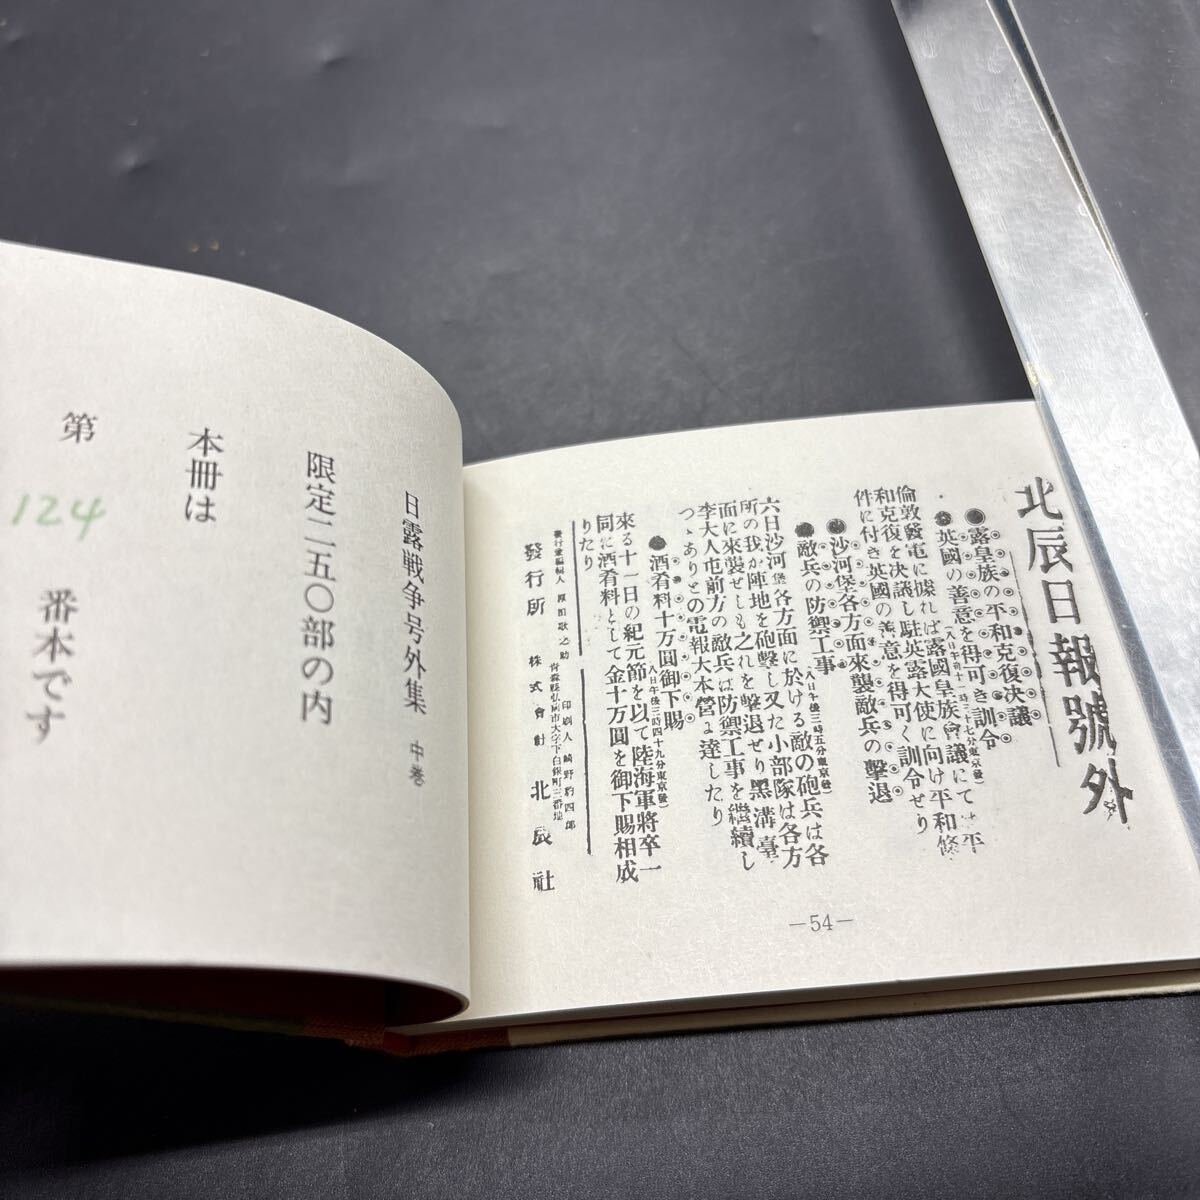 北辰日報號外
●露皇族の平和克復決議
●英國の善意を得可き訓令
(八日午前十一時三十七分東京發)
倫敦發電に據れば露國皇族會議にては平
和克復を決議し駐英露大使に向け平和條
件に付き英國の善意を得可く訓令せり
●沙河堡各方面來襲敵兵の擊退
●敵兵の防禦工事
(八日午後三時五分東京發)
六日沙河堡各方面に於ける敵の砲兵は各
所の我が陣地を砲擊し又た小部隊は各方
面に來襲せしも之れを擊退せり黑溝臺
李大人屯前方の敵兵は防禦工事を繼續し
つゝありとの電報大本營に達したり
●酒肴料十万圓御下賜
(八日午後三時四十九分東京發)
來る十一日の紀元節を以て陸海軍將卒一
同に酒肴料として金十万圓を御下賜相成
りたり
印刷人 崎野豹四郎
靑森縣弘前市大字下白銀町三番地
發行所 株式會社 北辰社
―54―
日露戦争号外集 中巻
限定二五〇部の内
本冊は
第 124 番本です